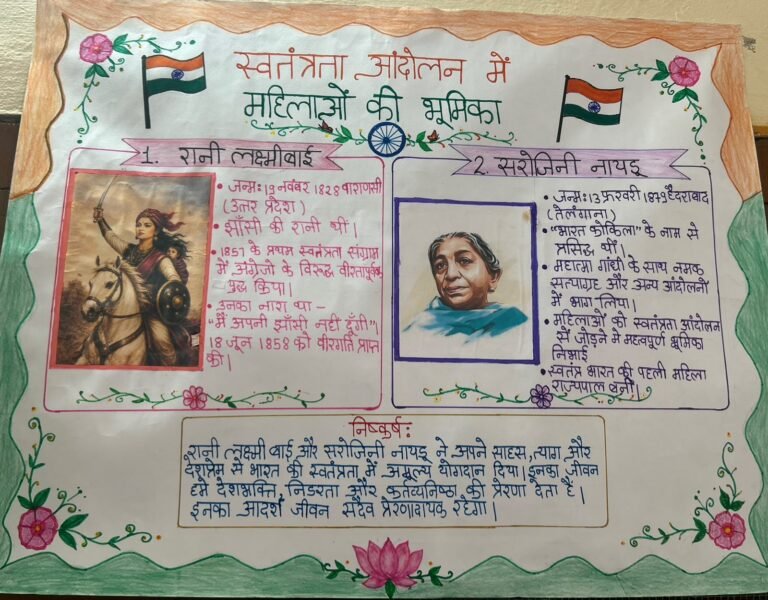 स्वतंत्रता आंदोलन में
महिलाओं की भूमिका
1. रानी लक्ष्मीबाई
• जन्म: 19 नवंबर 1828 वाराणसी
(उत्तर प्रदेश)
• झाँसी की रानी थीं।
• 1857 के प्रथम स्वतंत्रता संग्राम
में अंग्रेजो के विरुद्ध वीरतापूर्वक
युद्ध किया।
• उनका नारा था –
"मैं अपनी झाँसी नहीं दूँगी"।
18 जून 1858 को वीरगति प्राप्त
की।
2. सरोजिनी नायडू
• जन्म: 13 फ़रवरी 1879 हैदराबाद
(तेलंगाना)
• "भारत कोकिला" के नाम से
प्रसिद्ध थीं।
• महात्मा गांधी के साथ नमक
सत्याग्रह और अन्य आंदोलनों
में भाग लिया।
• महिलाओं को स्वतंत्रता आंदोलन
से जोड़ने में महत्वपूर्ण भूमिका
निभाई
• स्वतंत्र भारत की पहली महिला
राज्यपाल बनीं।
निष्कर्ष:
रानी लक्ष्मी बाई और सरोजिनी नायडू ने अपने साहस, त्याग और
देशप्रेम से भारत की स्वतंत्रता में अमूल्य योगदान दिया। इनका जीवन
हमे देशभक्ति, निडरता और कर्तव्यनिष्ठा की प्रेरणा देता है।
इनका आदर्श जीवन सदैव प्रेरणादायक रहेगा।